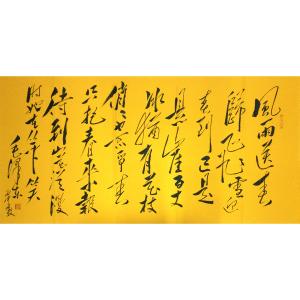 風雨送春
歸飛雪迎
春到已是
懸崖百丈
冰猶有花枝
俏〻也不争春
只把春來報
待到山花爛漫
時她在丛中笑
毛澤東